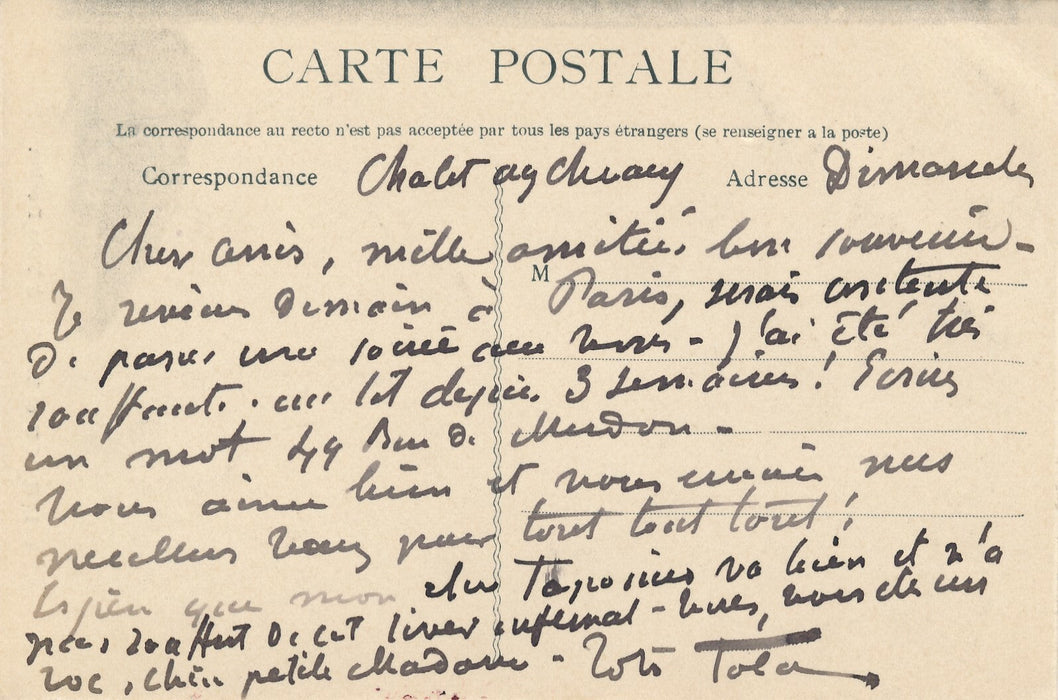 CARTE POSTALE
La correspondance au recto n'est pas acceptée par tous les pays étrangers (se renseigner a la poste)
Correspondance Chalet Adresse Dimanche
Chers amis, mille amitiés bon souvenir -
M
Je reviens Demain à Paris, serais contente
De passer une soirée avec vous - J'ai été très
souffrante. au lit depuis 3 semaines! Ecrivez
un mot 49 Rue De Meudon -
Vous aime bien et vous envoie mes
meilleurs voeux pour tout tout tout!
Espère que mon cher va bien et n'a
pas souffert De cet hiver infernal - vous, vous êtes un
roc, chère petite Madame - Toto Tola